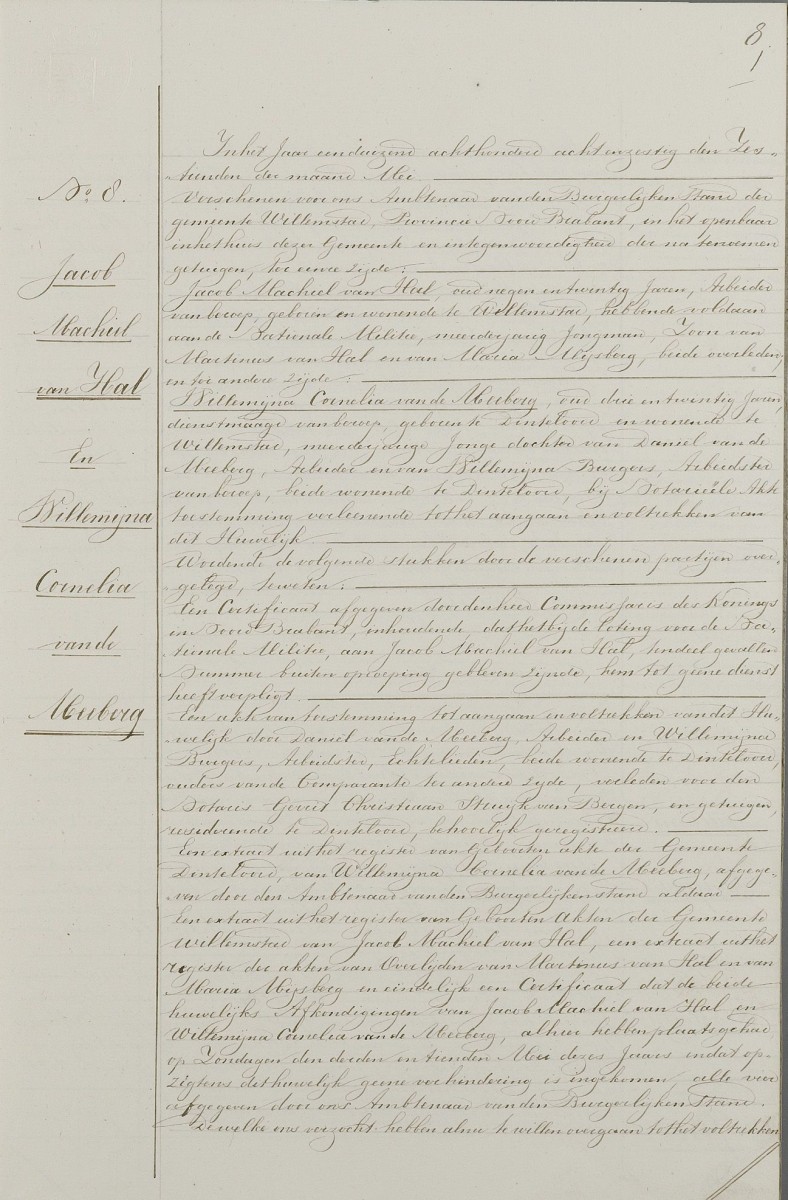 8
1
No 8.
Jacob
Machiel
van Hal
En
Willemijna
Cornelia
van de
Meeberg
In het Jaar een duizend achthonderd acht en zestig den Zes-
tienden der maand Mei
Verschenen voor ons Ambtenaar van den Burgerlijken Stand der
gemeente Willemstad, Provincie Noord Braband, in het openbaar
in het huis dezer Gemeente en in tegenwoordigheid der na tenoemen
getuigen, ter eenre zijde:
Jacob Machiel van Hal, oud negen en twintig Jaren, Arbeider
van beroep, geboren en wonende te Willemstad, hebbende voldaan
aan de Nationale Militie, meerderjarig Jongman, Zoon van
Martenus van Hal en van Maria Mijsberg, beide overleden,
en ter andere zijde:
Willemijna Cornelia van de Meeberg, oud drie en twintig Jaren,
dienstmaagd van beroep, geboren te Dinteloord en wonende te
Willemstad, meerderjarige Jonge dochter van Daniel van de
Meeberg, Arbeider en van Willemijna Burgers, Arbeidster
van beroep, beide wonende te Dinteloord, bij Notariëele Akte
toestemming verleenende tot het aangaan en voltrekken van
dit Huwelijk
Wordende de volgende stukken door de verschenen partijen over-
gelegd, teweten:
Een Certificaat afgegeven door den heer Commissaris des Konings
in Noord Braband, inhoudende, dat het bij de loting voor de Na-
tionale Militie, aan Jacob Machiel van Hal, tendeel gevallen
Nummer buiten oproeping gebleven zijnde, hem tot geene dienst
heeft verpligt.
Een akte van toestemming tot aangaan en voltrekken van dit Hu-
welijk door Daniel van de Meeberg, Arbeider en Willemijna
Burgers, Arbeidster, Echtelieden, beide wonende te Dinteloord,
ouders van de Comparante ter andere zijde, verleden voor den
Notaris Gerrit Christiaan Stuijk van Bergen, en getuigen,
resideerende te Dinteloord, behoorlijk geregistreerd.
Een extract uit het register van Geboorten akte der Gemeente
Dinteloord, van Willemijna Cornelia van de Meeberg, afgege-
ven door den Ambtenaar van den Burgerlijken stand aldaar
Een extract uit het register van Geboorten Akten der Gemeente
Willemstad van Jacob Machiel van Hal, een extract uit het
register der akten van Overlijden van Martenus van Hal en van
Maria Mijsberg en eindelijk een Certificaat dat de beide
huwelijks Afkondigingen van Jacob Machiel van Hal en
Willemijna Cornelia van de Meeberg, alhier hebben plaats gehad
op Zondagen den derden en tienden Mei dezes Jaars en dat op-
zigtens dat huwelijk geene verhindering is ingekomen, alle voor
afgegeven door ons Ambtenaar van den Burgerlijken Stand.
Dewelke ons verzocht hebben alnu te willen overgaan tot het voltrekken